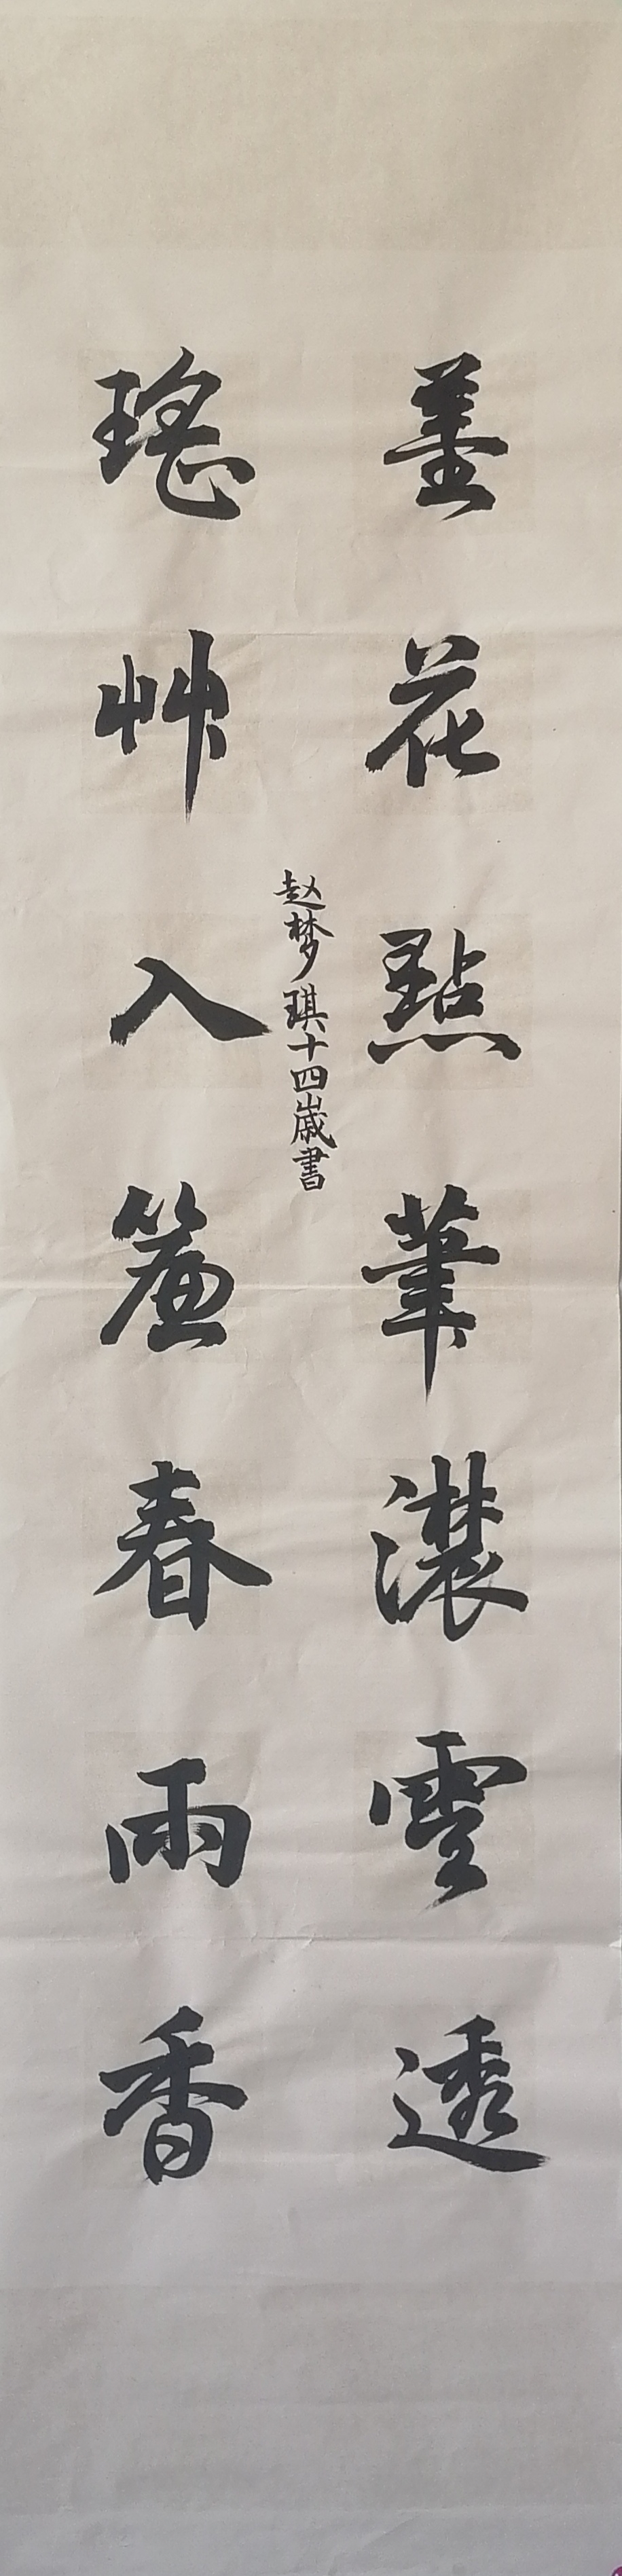 墨花點筆濃雲透
瑤艸入簾春雨香
赵梦琪十四歲書